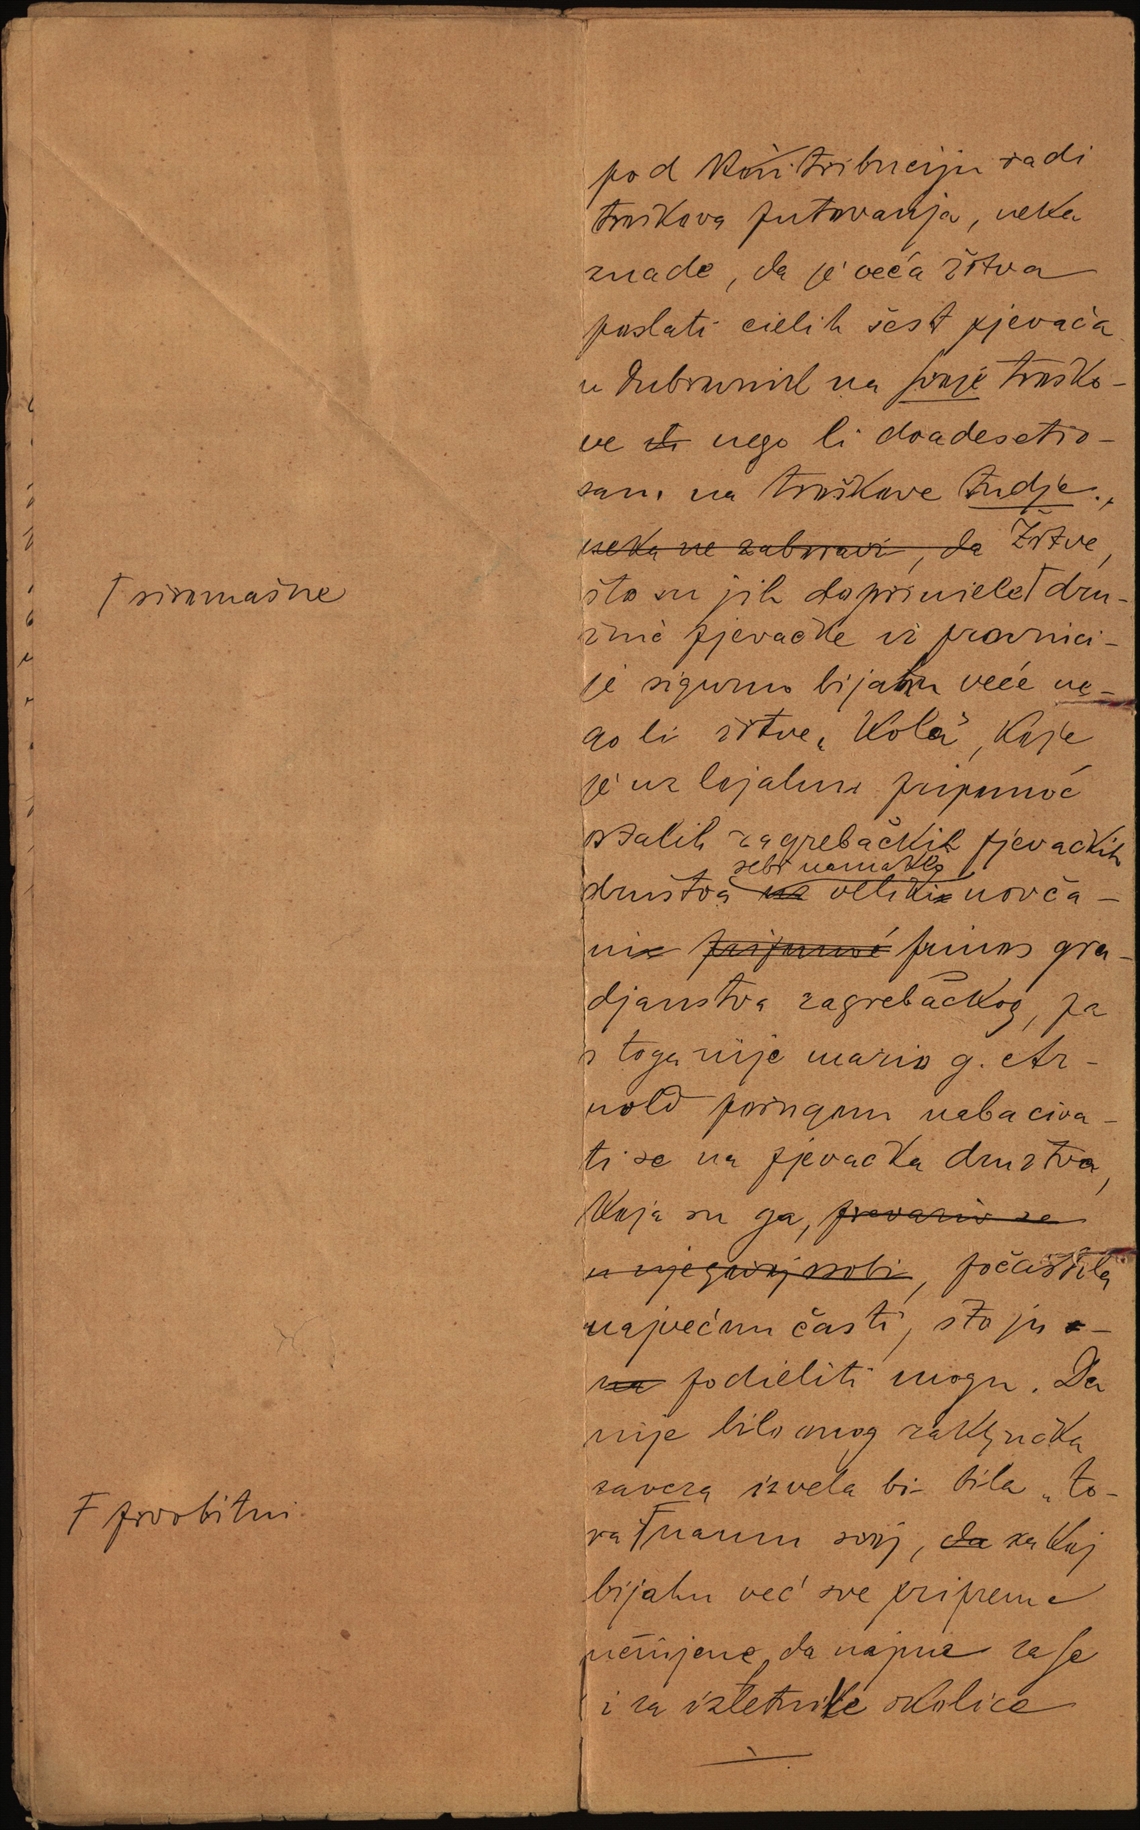 pod kontribuciju radi
troškova putovanja, neka
znade, da je veća žrtva
poslati cielih šest pjevača
u Dubrovnik na svoje troško-
ve nego li dvadesetio-
sam na troškove tudje.,
neka ne zaboravi, da Žrtve,
što su jih dopriniele Γ dru-
Γ siromašne
žine pjevačke iz provinci-
je sigurno bijahu veće ne-
go li žrtve „Kola", koje
je uz lojalnu pripomoć
ostalih zagrebačkih pjevačkih
sebi namaklo
društva na veliki novča-
ni pripomoć prinos gra-
djanstva zagrebačkog, pa
s toga nije mario g. Ar-
nold porugom nabaciva-
ti se na pjevačka družtva,
koja su ga, prevariv se
u njegovoj osobi, počastila
najvećom časti, što ju
podieliti mogu. Da
nije bilo onog zaključka
saveza izvela bi bila „Zo-
raˮ Γ naum svoj, da za koj
Γ prvobitni
bijahu već sve pripreme
učinjene, da najme za se
i za izletnike okolice